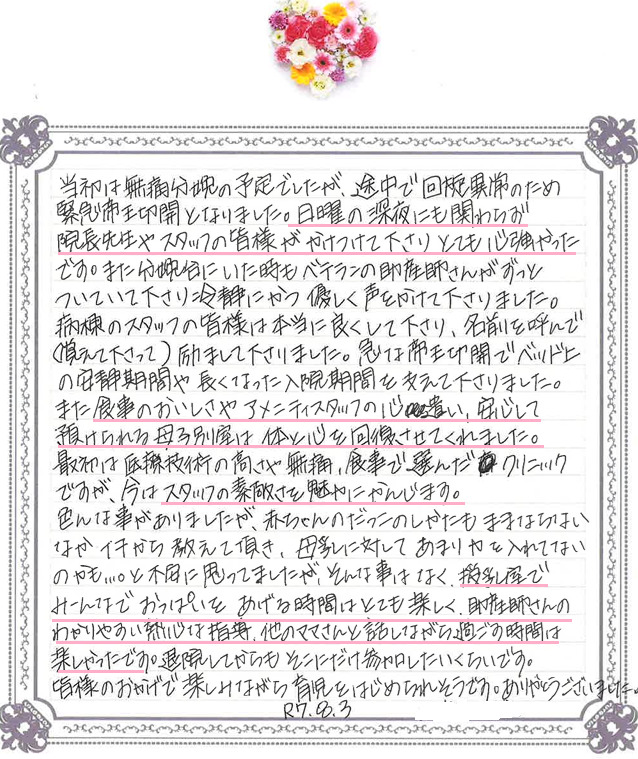 当初は無痛分娩の予定でしたが、途中で回旋異常のため
緊急帝王切開となりました。日曜の深夜にも関わらず
院長先生やスタッフの皆様がかけつけて下さりとても心強かった
です。また分娩台にいた時もベテランの助産師さんがずっと
ついていて下さり冷静にかつ優しく声をかけて下さりました。
病棟のスタッフの皆様は本当に良くして下さり、名前を呼んで
(覚えて下さって)励まして下さりました。急な帝王切開でベッド上
の安静期間や長くなった入院期間を支えて下さりました。
また食事のおいしさやアメニティスタッフの心遣い、安心して
預けられる母子別室は体と心を回復させてくれました。
最初は医療技術の高さや無痛、食事で選んだクリニック
ですが、今はスタッフの素敵さを魅力にかんじます。
色んな事がありましたが、赤ちゃんのだっこのしかたもままならない
なかイチから教えて頂き、母乳に対してあまり力を入れてない
のかも…。と不安に思ってましたが、そんな事はなく、授乳室で
みーんなでおっぱいをあげる時間はとても楽しく、助産師さんの
わかりやすい熱心な指導、他のママさんと話しながら過ごす時間は
楽しかったです。退院してからもそこにだけ参加したいくらいです。
皆様のおかげで楽しみながら育児をはじめられそうです。ありがとうございました。
R7.8.3